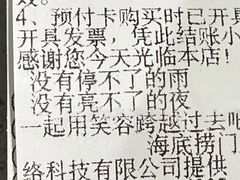 4、预付卡购买时已开具
开具发票，凭此结账小
感谢您今天光临本店！
没有停不了的雨
没有亮不了的夜
一起用笑容跨越过去吧
海底捞门
络科技有限公司提供